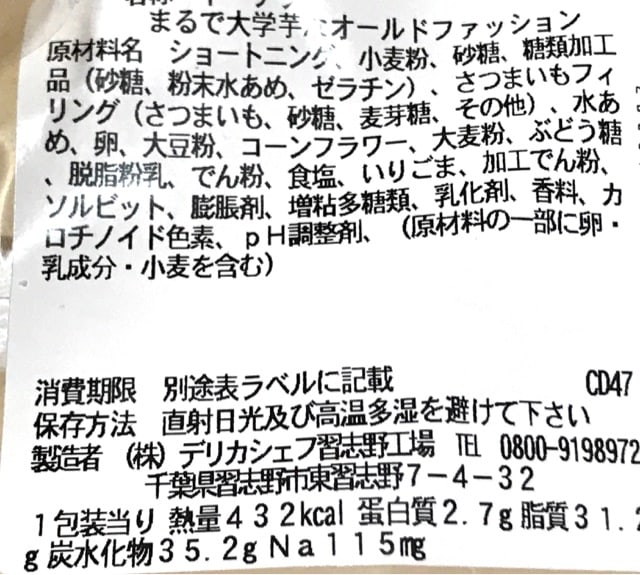 まるで大学芋 オールドファッション
原材料名 ショートニング、小麦粉、砂糖、糖類加工
品(砂糖、粉末水あめ、ゼラチン)、さつまいもフィ
リング(さつまいも、砂糖、麦芽糖、その他)、水あ
め、卵、大豆粉、コーンフラワー、大麦粉、ぶどう糖
、脱脂粉乳、でん粉、食塩、いりごま、加工でん粉、
ソルビット、膨脹剤、増粘多糖類、乳化剤、香料、カ
ロチノイド色素、pH調整剤、(原材料の一部に卵・
乳成分・小麦を含む)
消費期限 別途表ラベルに記載 CD47
保存方法 直射日光及び高温多湿を避けて下さい
製造者 (株)デリカシェフ習志野工場 TEL 0800-9198972
千葉県習志野市東習志野7-4-32
1包装当り 熱量432kcal 蛋白質2.7g 脂質31.2
g 炭水化物35.2g Na115mg